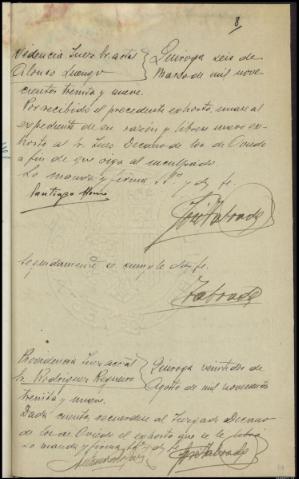 8
Providencia Juez acctal Quiroga seis de
Alonso Luengo Marzo de mil nove
cientos treinta y nueve.
Por recibido el precedente exhorto, unase al
expediente de su razón y librese nuevo ex-
horto al Sr. Juez Decano de los de Oviedo
a fin de que oiga al inculpado.
Lo manda y firma S.Sª doy fe.
Santiago Alonso
José Taboada
Seguidamente se cumple doy fe.
Taboada
Providencia Juez acctal Quiroga veintidos de
Sr. Rodríguez Agosto de mil novecientos
treinta y nueve.
Dada cuenta recuerdese al Juzgado Decano
de los de Oviedo el exhorto que se le libró
Lo manda y firma S.Sª doy fe.
José Taboada